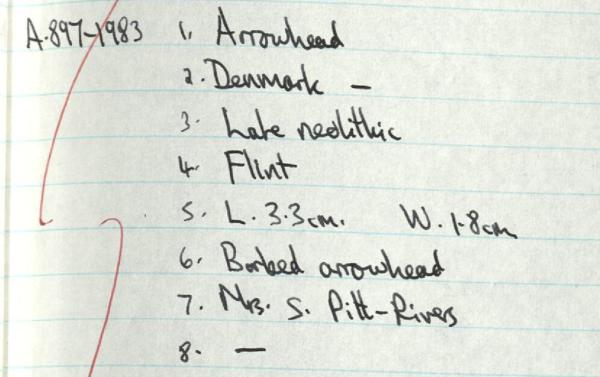 A.897-1983 1. Arrowhead
2. Denmark —
3. Late neolithic
4. Flint
5. L. 3.3cm. W. 1.8cm
6. Barbed arrowhead
7. Mrs. S. Pitt-Rivers
8. —